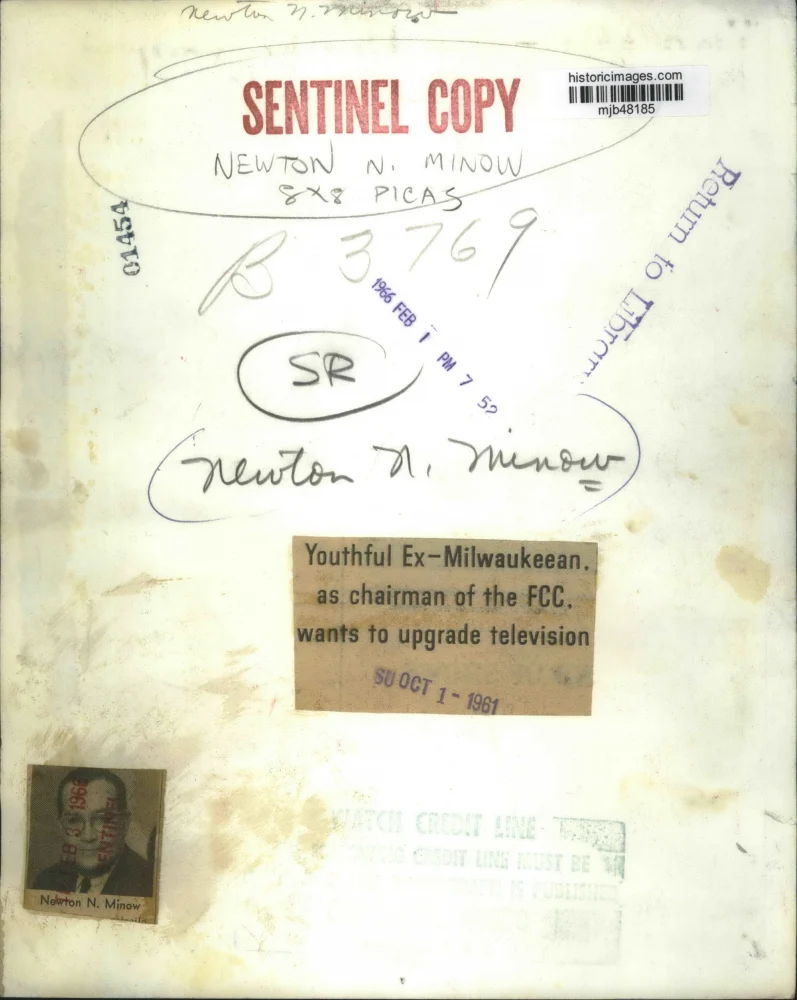 Newton N. Minow
SENTINEL COPY
historicimages.com
mjb48185
NEWTON N. MINOW
8X8 PICAS
01454
Return to Library
B 3769
1966 FEB 1 PM 7 52
SR
Newton N. Minow
Youthful Ex-Milwaukeean,
as chairman of the FCC,
wants to upgrade television
SU OCT 1 - 1961
FEB 3 1966
SENTINEL
Newton N. Minow
WATCH CREDIT LINE
CREDIT LINE MUST BE
IS PUBLISHED